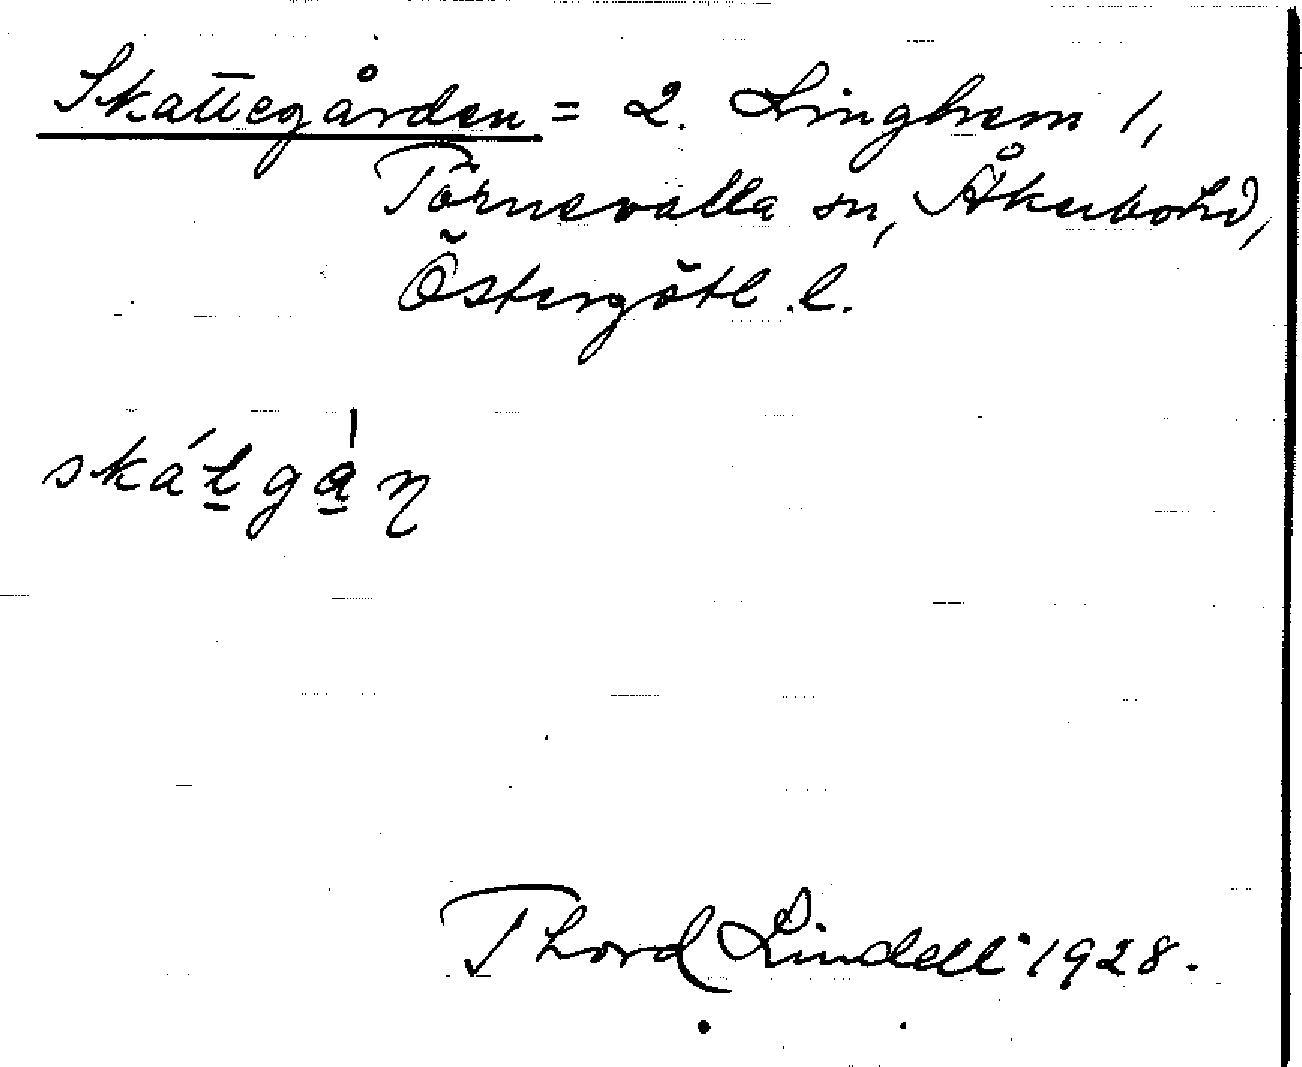 Skattegården = 2. Linghem 1,
Törnevalla sn, Åkerbo hd,
Östergötl. l.
skát̲ga̲ꞥ
Thord Lindell 1928.